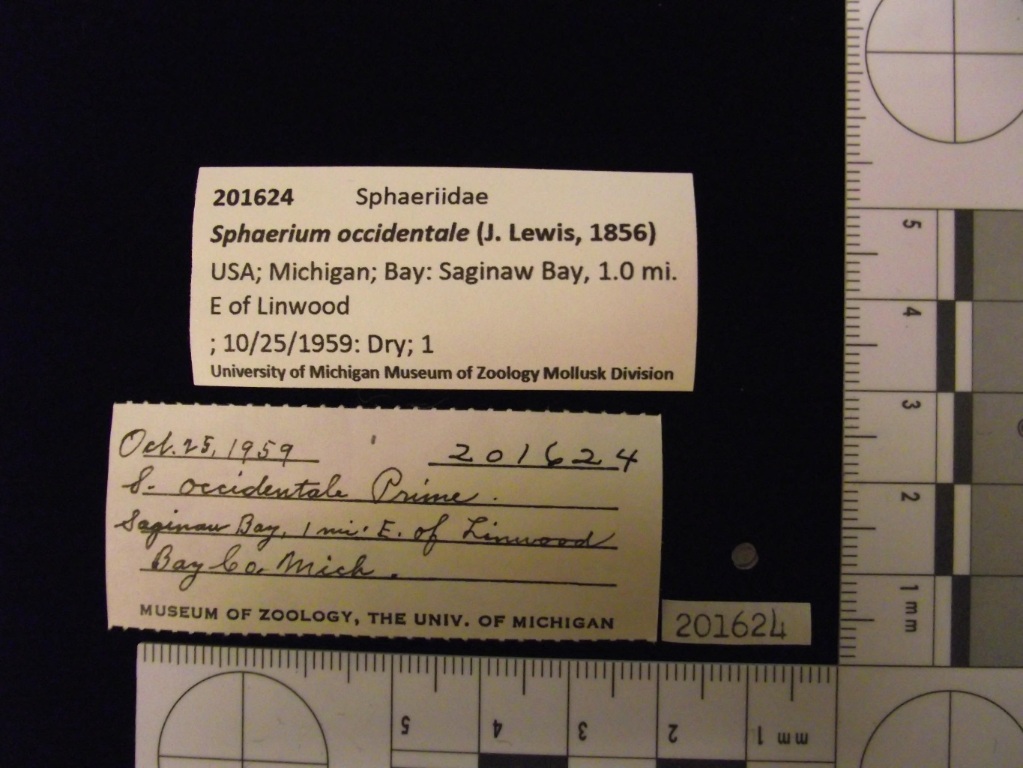 201624 Sphaeriidae
Sphaerium occidentale (J. Lewis, 1856)
USA; Michigan; Bay: Saginaw Bay, 1.0 mi.
E of Linwood
; 10/25/1959: Dry; 1
University of Michigan Museum of Zoology Mollusk Division
Oct. 25, 1959 201624
S. occidentale Prime.
Saginaw Bay, 1 mi. E. of Linwood
Bay Co. Mich.
MUSEUM OF ZOOLOGY, THE UNIV. OF MICHIGAN
201624
5
4
3
2
1 mm
5 4 3 2 1 mm